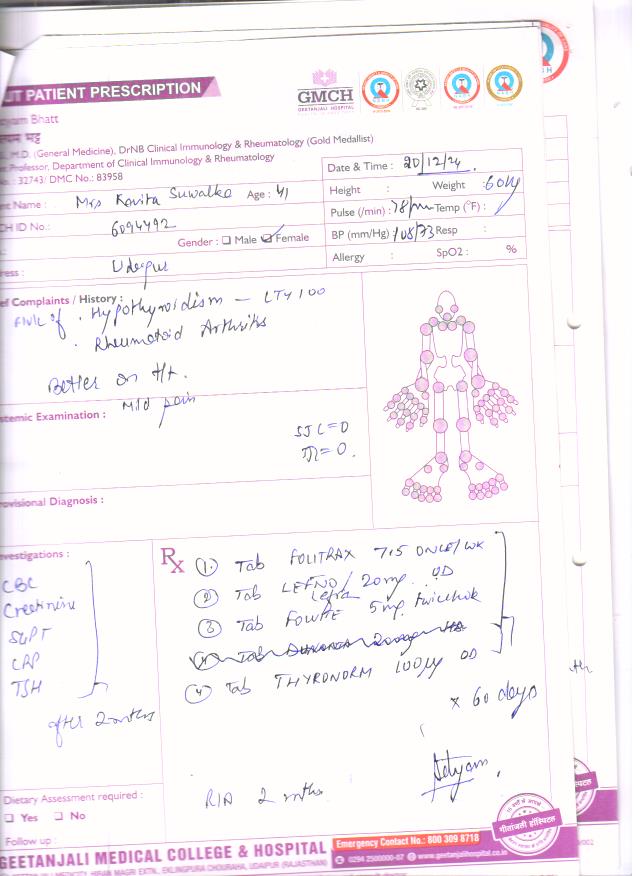 UT PATIENT PRESCRIPTION
GMCH
GEETANJALI HOSPITAL
yam Bhatt
यम भट्ट
M.D. (General Medicine), DrNB Clinical Immunology & Rheumatology (Gold Medallist)
Professor, Department of Clinical Immunology & Rheumatology
: 32743/ DMC No.: 83958
nt Name : Mrs Kavita Suwalka Age : 41
CH ID No.: 6094492
Gender : Male Female
ress : Udaipur
Date & Time : 20/12/24
Height : Weight : 60kg
Pulse (/min) : 78/min Temp (°F) :
BP (mm/Hg) 108/73 Resp :
Allergy : SpO2 : %
ef Complaints / History :
of . Hypothyroidism - LT4 100
. Rheumatoid Arthritis
Better on t/t.
Mild pain
stemic Examination :
SJC = 0
TJC = 0.
rovisional Diagnosis :
vestigations :
CBC
Creatinine
SGPT
CRP
TSH
after 2 months
Rx
(1) Tab FOLITRAX 7.5 ONCE/WK
(2) Tab LEFNO / Lefra 20mg OD
(3) Tab FOLVITE 5mg twice/wk
(4) Tab THYRONORM 100µg OD
x 60 days
R/A 2 mths.
Dietary Assessment required :
Yes No
Follow up :
GEETANJALI MEDICAL COLLEGE & HOSPITAL
Emergency Contact No.: 800 309 8718
0294 2500000-07 www.geetanjalihospital.co.in
HIRAN MAGRI EXTN., EKLINGPURA CHOURAHA, UDAIPUR (RAJASTHAN)
गीतांजली हॉस्पिटल